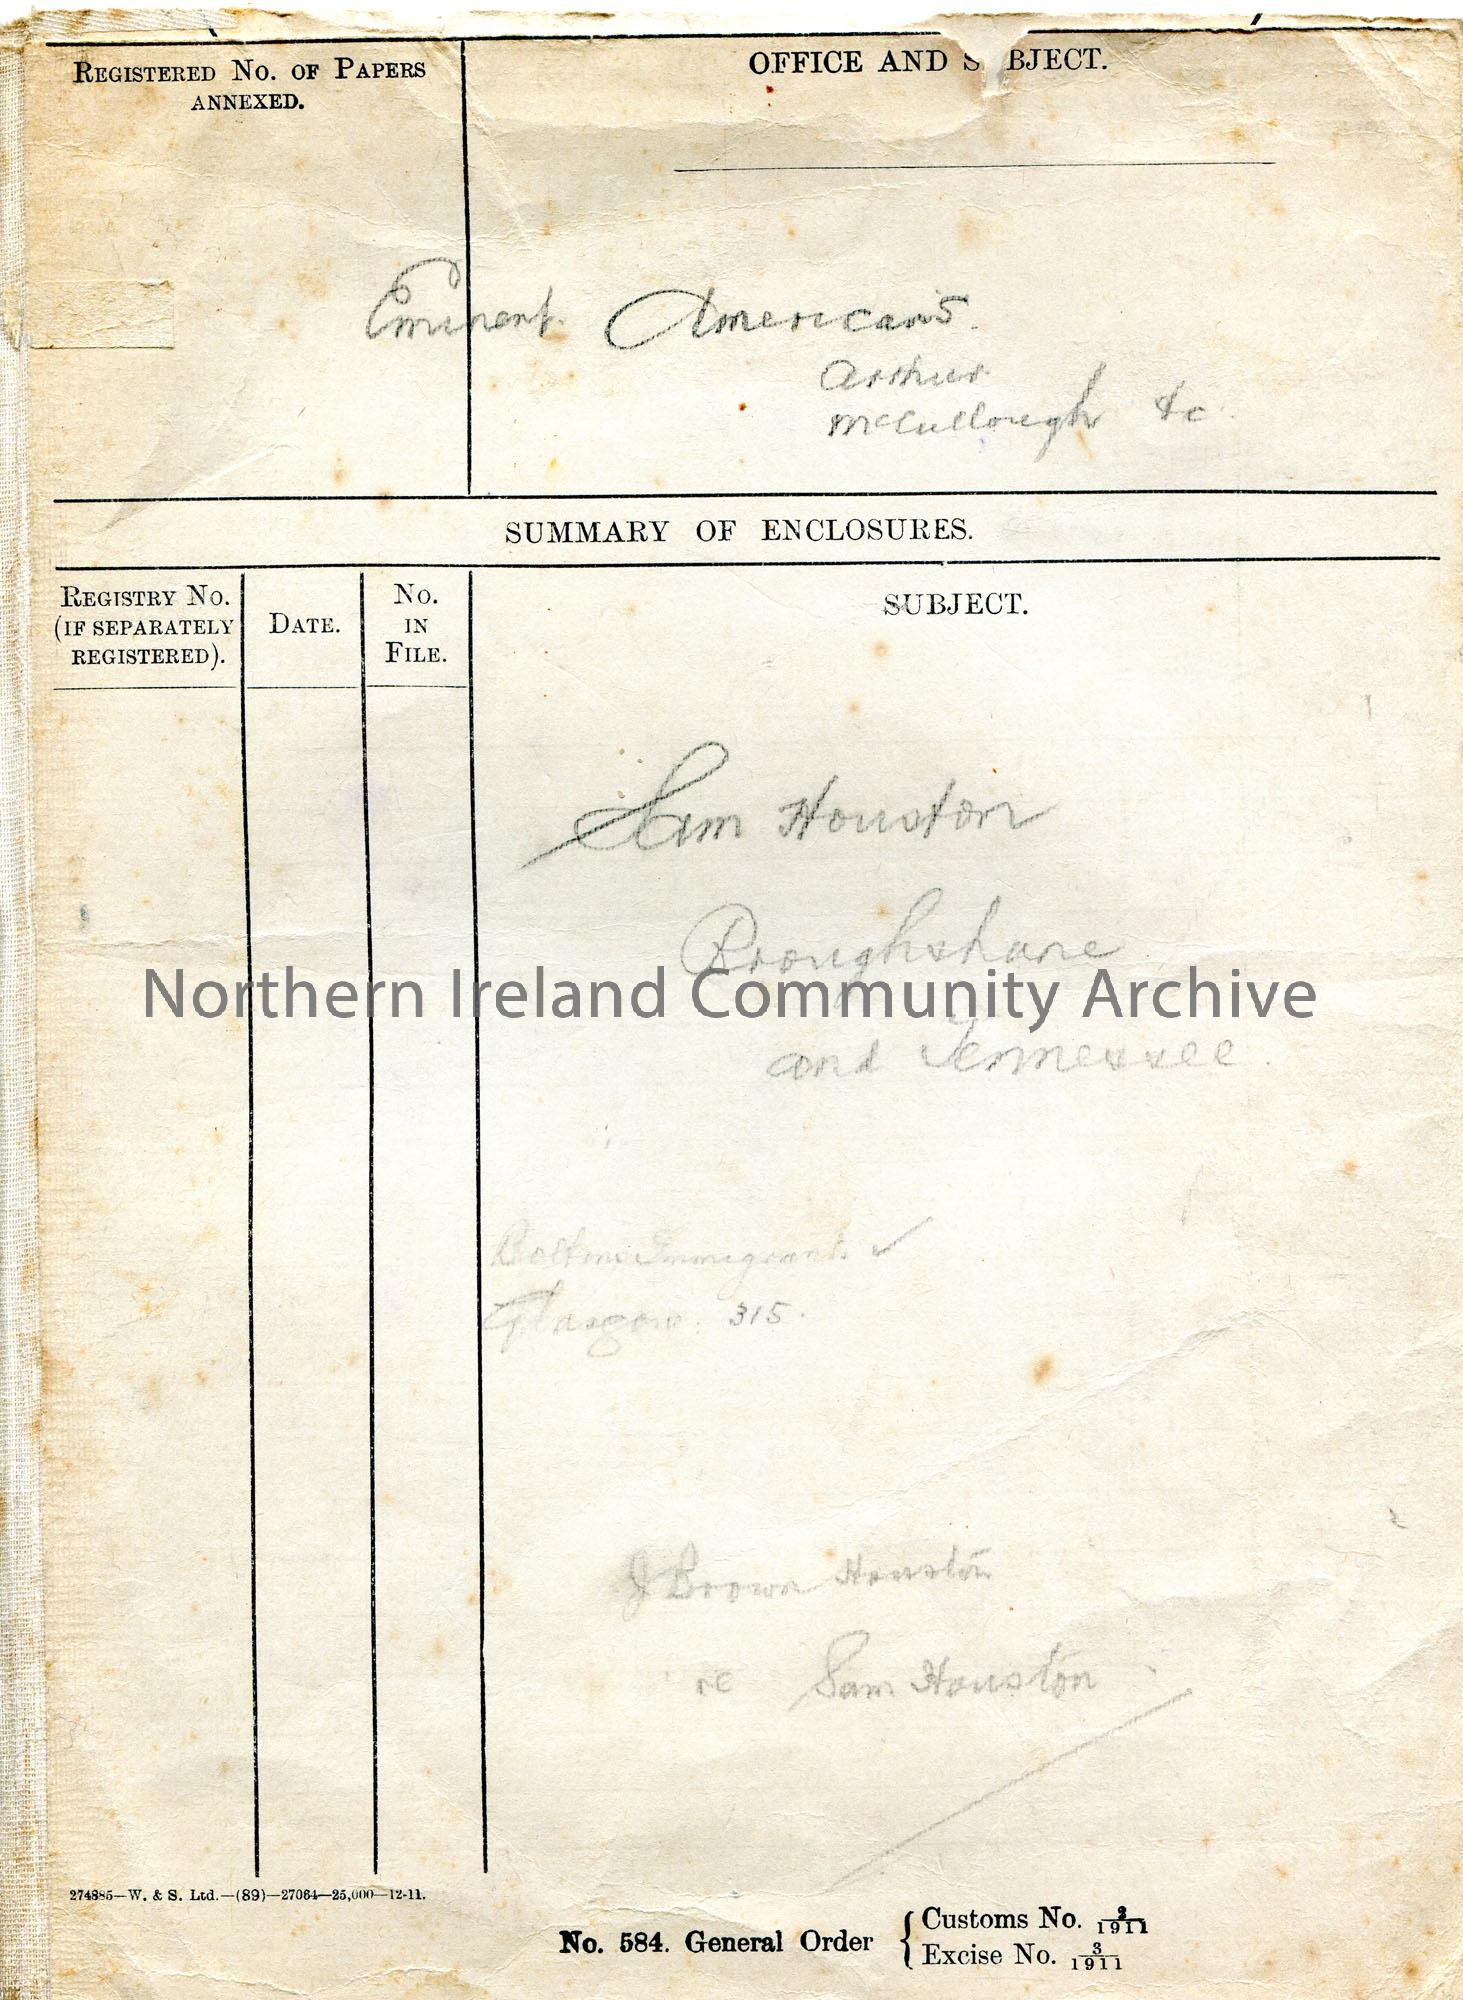 REGISTERED NO. OF PAPERS
ANNEXED.
OFFICE AND S BJECT.
Eminent Americans.
Arthur
McCullough &c.
SUMMARY OF ENCLOSURES.
REGISTRY NO.
(IF SEPARATELY
REGISTERED).
DATE.
NO.
IN
FILE.
SUBJECT.
Sam Houston
Broughshane
Northern Ireland Community Archive
and Tennessee.
Bolton Immigrants ✓
Glasgow. 315.
J Brown Houston
re Sam Houston
274885—W. & S. Ltd.—(89)—27064—25,000—12-11.
No. 584. General Order { Customs No. 2/1911
Excise No. 3/1911